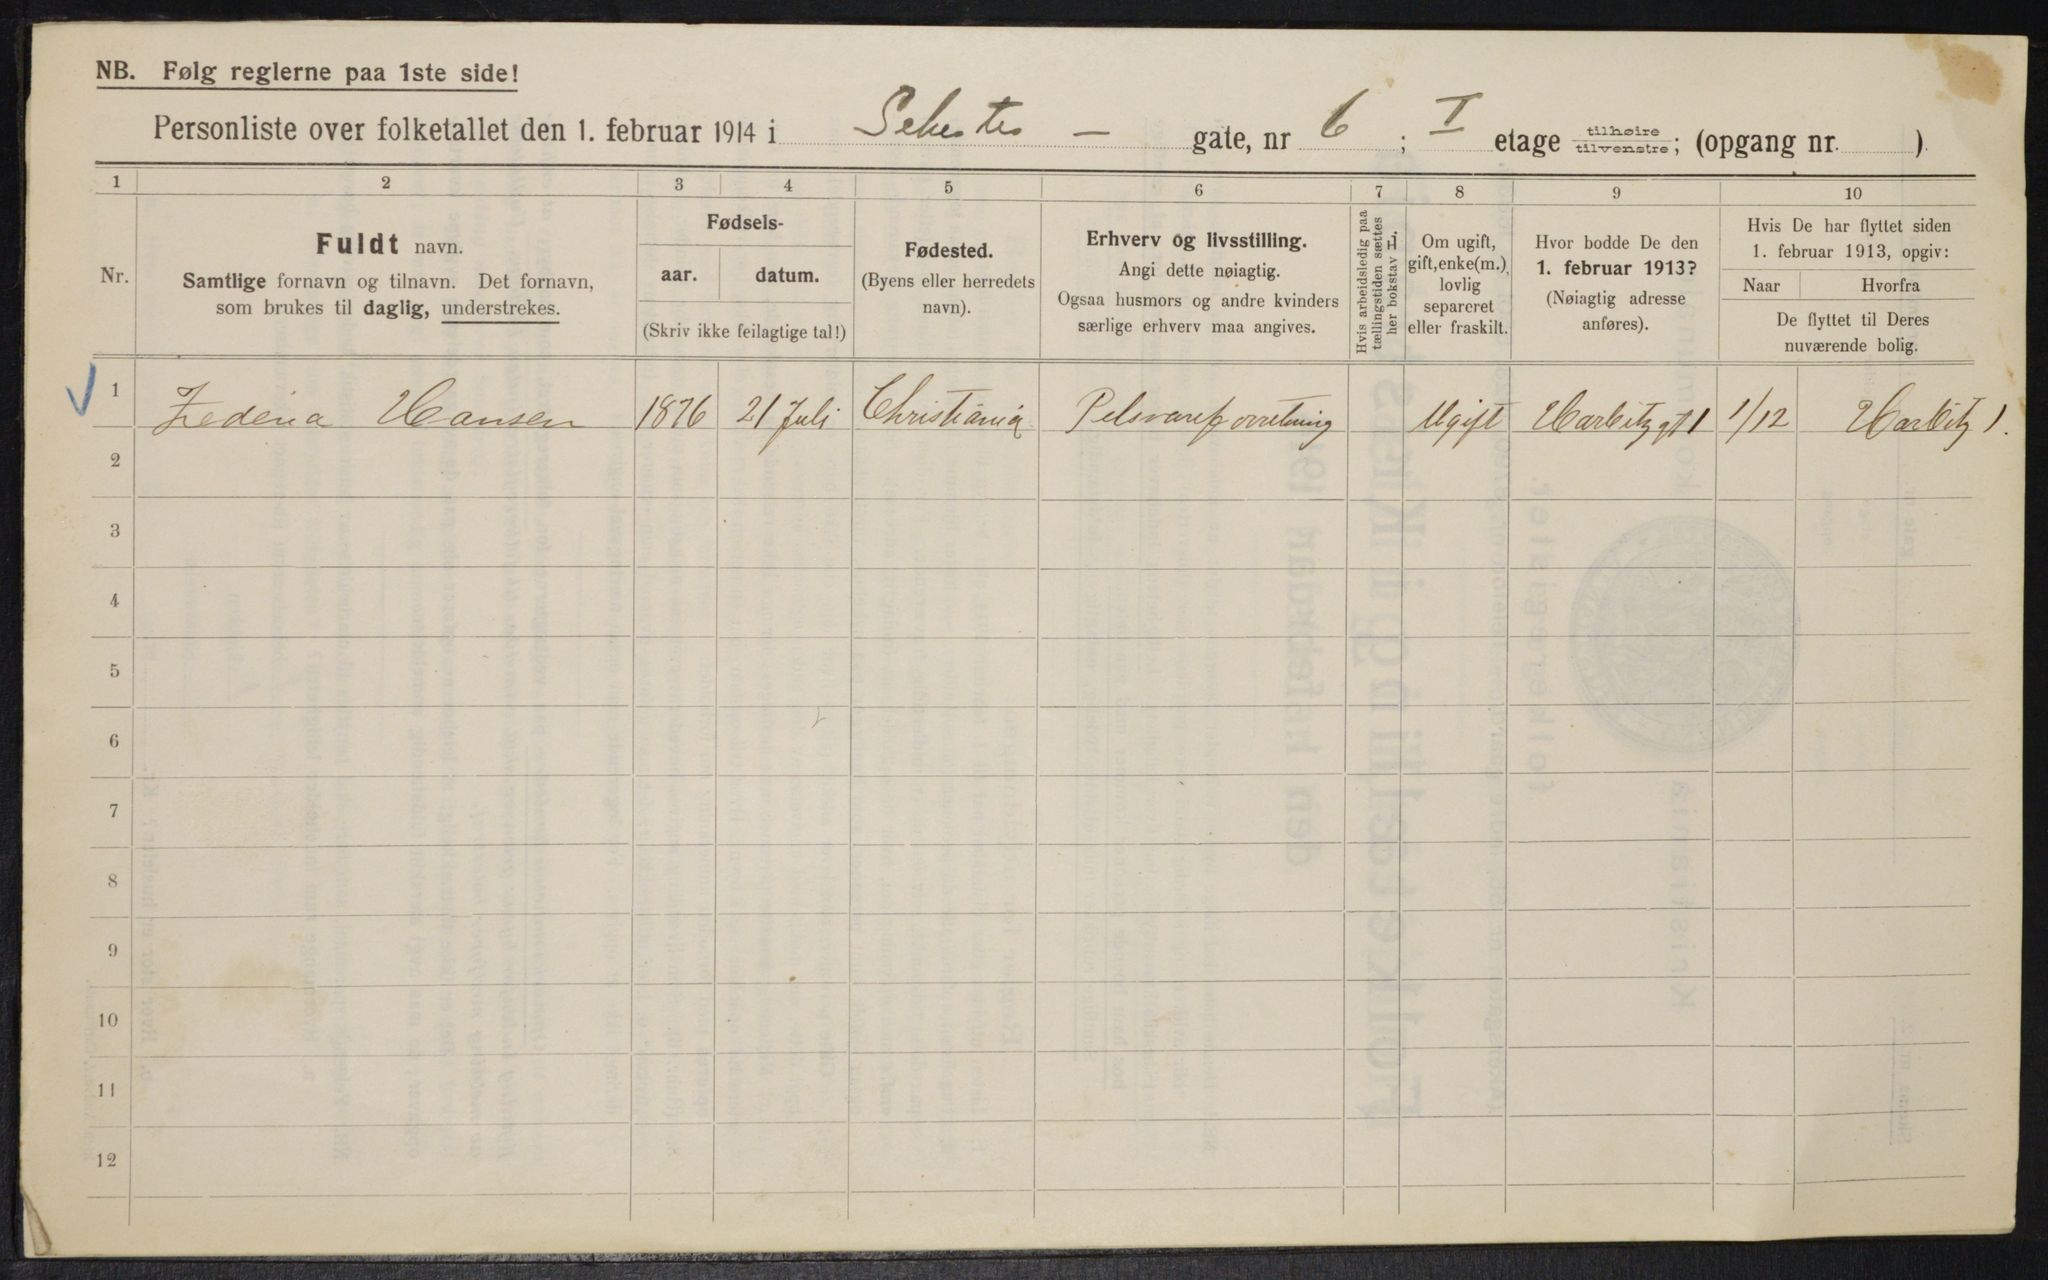 NB. Følg reglerne paa 1ste side!
Personliste over folketallet den 1. februar 1914 i Sehestes - gate, nr 6; I etage tilhøire/tilvenstre; (opgang nr. ).
1 2 3 4 5 6 7 8 9 10
Nr.
Fuldt navn.
Samtlige fornavn og tilnavn. Det fornavn,
som brukes til daglig, understrekes.
Fødsels-
aar. datum.
(Skriv ikke feilagtige tal!)
Fødested.
(Byens eller herredets
navn).
Erhverv og livsstilling.
Angi dette nøiagtig.
Ogsaa husmors og andre kvinders
særlige erhverv maa angives.
Hvis arbeidsledig paa
tællingstiden sættes
her bokstav L.
Om ugift,
gift, enke(m.),
lovlig
separeret
eller fraskilt.
Hvor bodde De den
1. februar 1913?
(Nøiagtig adresse
anføres).
Hvis De har flyttet siden
1. februar 1913, opgiv:
Naar Hvorfra
De flyttet til Deres
nuværende bolig.
1 Hansen 1876 21 Juli Christiania Pelsvareforretning Ugift Harbitzgt 1 1/12 Harbitz 1.
2
3
4
5
6
7
8
9
10
11
12